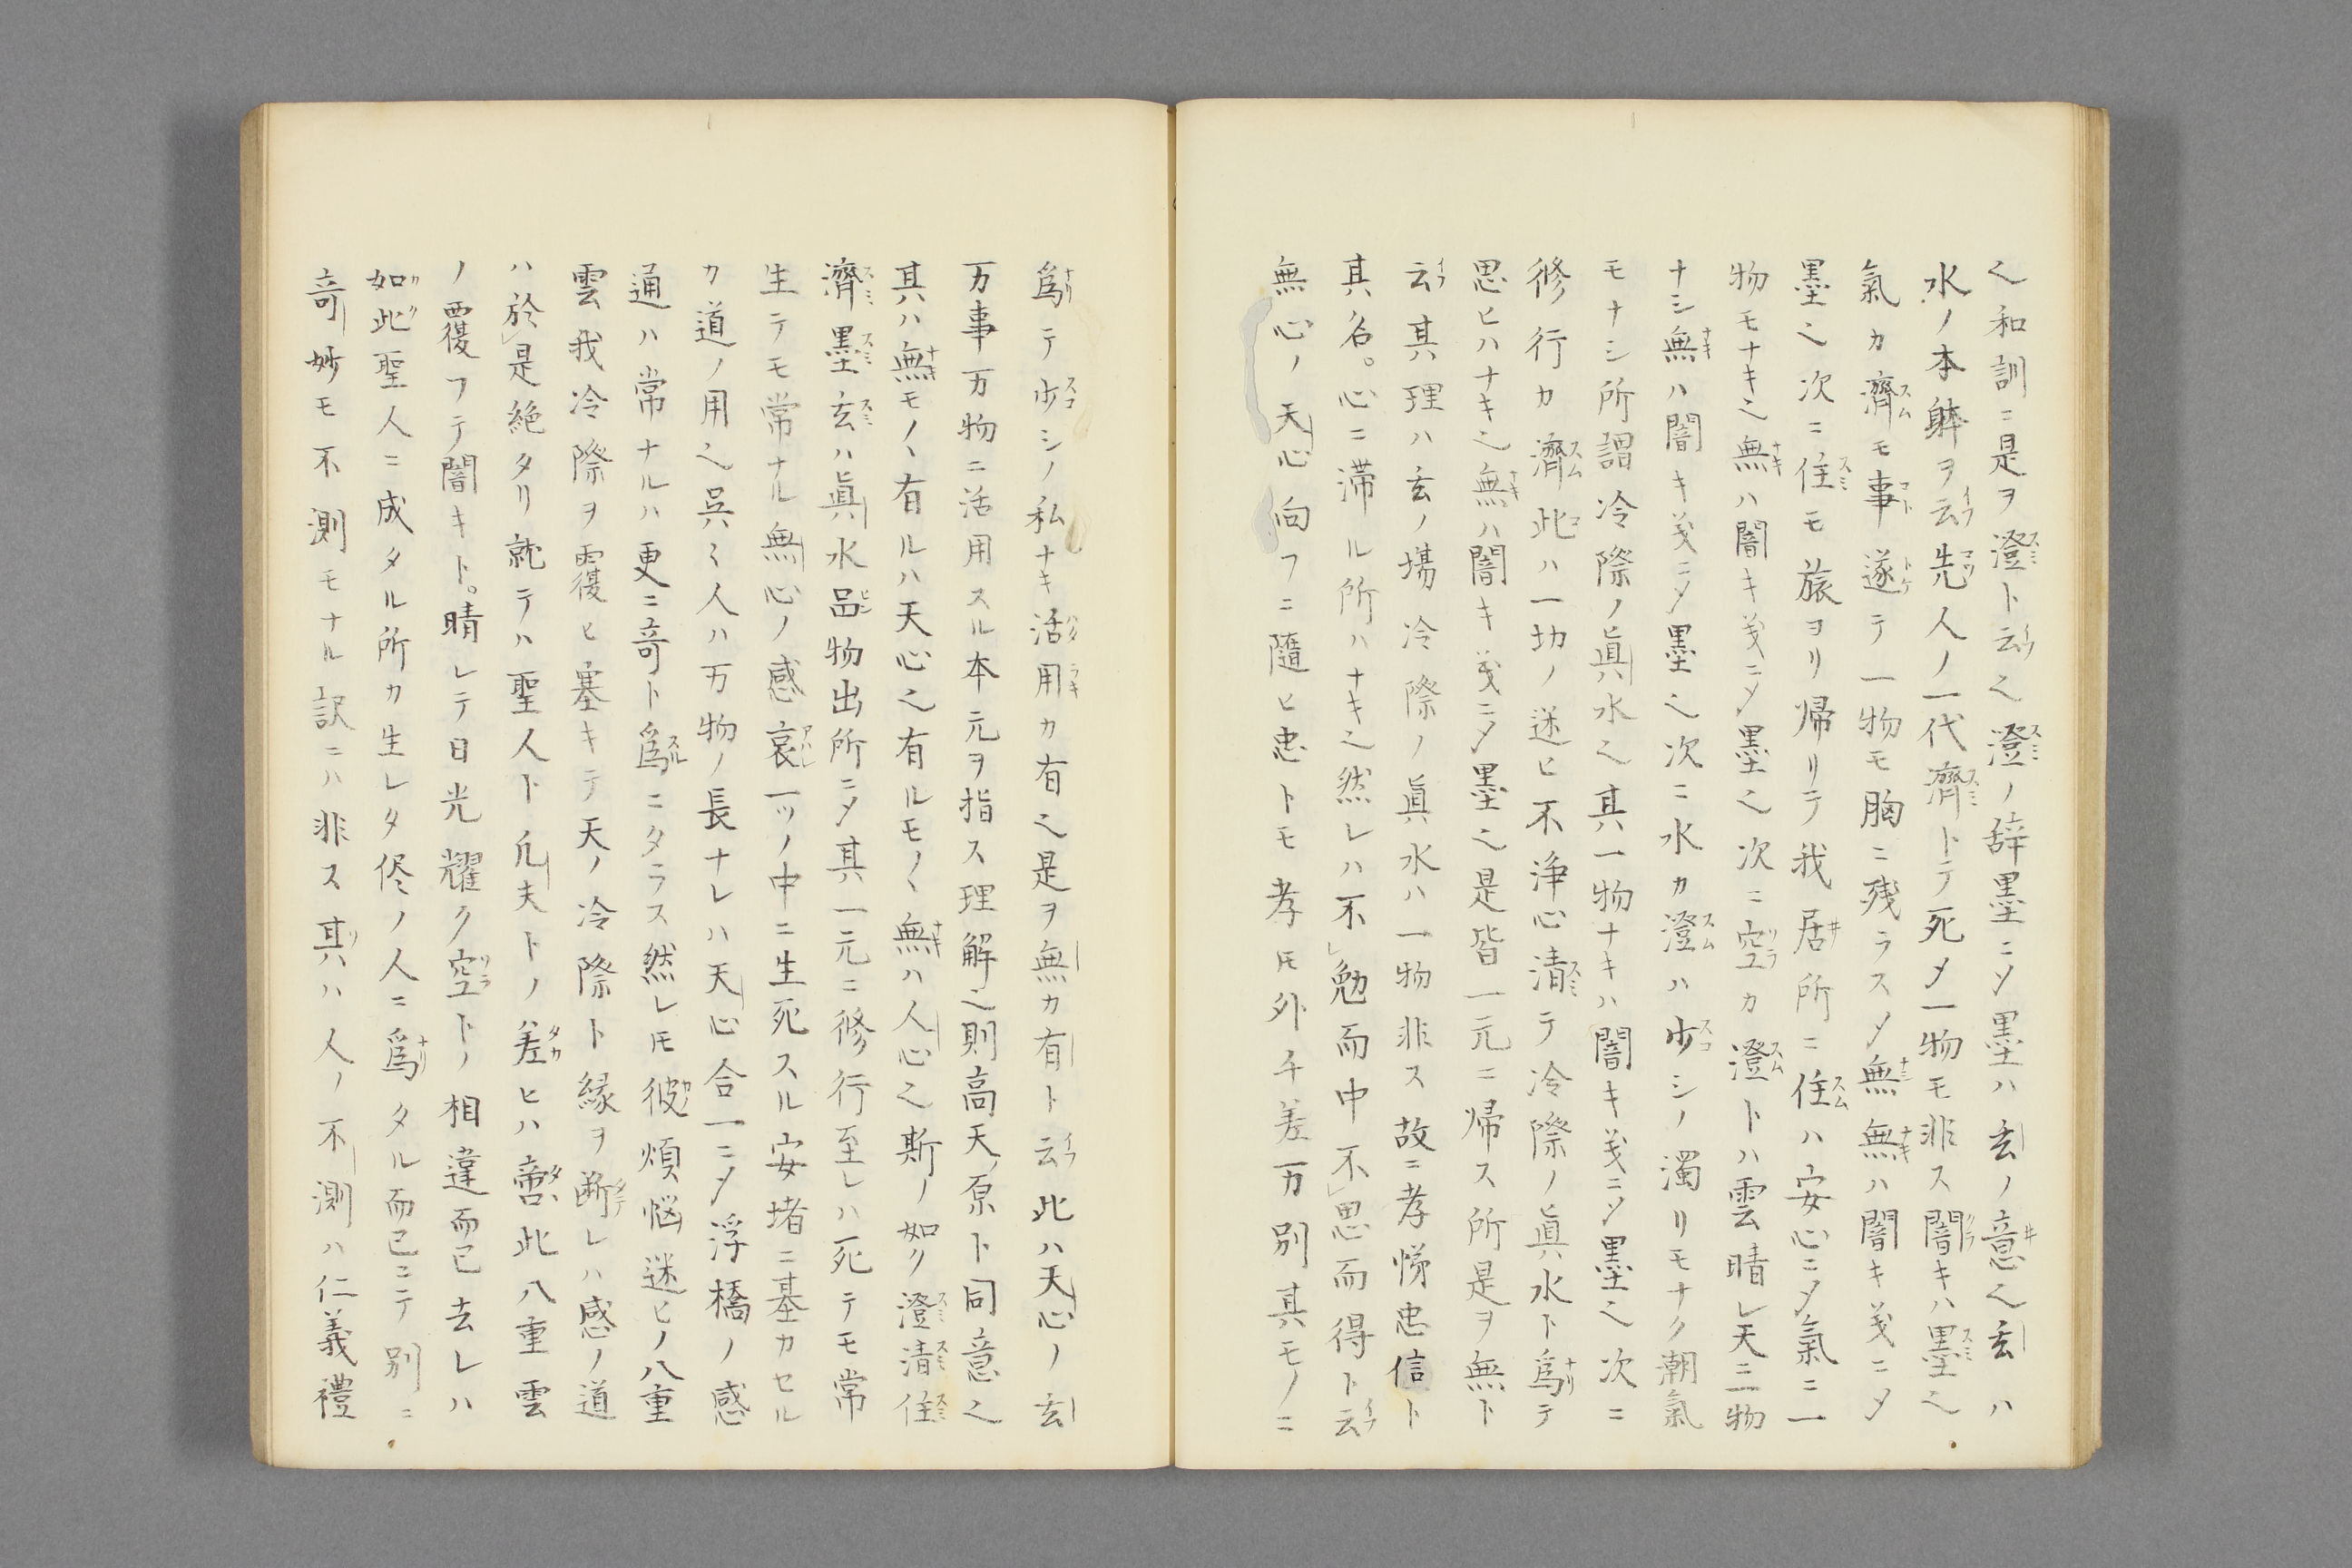 之和訓ニ是ヲ澄ト云之澄ノ辞墨ニ〆墨ハ玄ノ意之玄ハ
水ノ本躰ヲ云先人ノ一代濟トテ死〆一物モ非ス闇キハ墨之
氣カ濟モ事遂テ一物モ胸ニ残ラス〆無無ハ闇キ義ニ〆
墨之次ニ住モ旅ヨリ帰リテ我居所ニ住ハ安心ニ〆氣ニ一
物モナキ之無ハ闇キ義ニ〆墨之次ニ空カ澄トハ雲晴レ天ニ一物
ナシ無ハ闇キ義ニ〆墨之次ニ水カ澄ハ少シノ濁リモナク潮氣
モナシ所謂冷際ノ眞水之其一物ナキハ闇キ義ニ〆墨之次ニ
修行カ濟此ハ一切ノ迷ヒ不浄心清テ冷際ノ眞水ト爲テ
思ヒハナキ之無ハ闇キ義ニ〆墨之是皆一元ニ帰ス所是ヲ無ト
云其理ハ玄ノ場冷際ノ眞水ハ一物非ス故ニ孝悌忠信ト
其名。心ニ滞ル所ハナキ之然レハ不勉而中不思而得ト云
無心ノ天心向フニ隨ヒ忠トモ孝トモ外千差万別其モノニ
爲テ少シノ私ナキ活用カ有之是ヲ無カ有ト云此ハ天心ノ玄
万事万物ニ活用スル本元ヲ指ス理解之則高天原ト同意之
其ハ無モノヽ有ルハ天心之有ルモノヽ無ハ人心之斯ノ如ク澄清住
濟墨玄ハ眞水品物出所ニ〆其一元ニ修行至レハ死テモ常
生テモ常ナル無心ノ感哀一ツノ中ニ生死スル安堵ニ基カセル
カ道ノ用之呉々人ハ万物ノ長ナレハ天心合一ニ〆浮橋ノ感
通ハ常ナルハ更ニ奇ト爲ニタラス然レ𪜈彼煩悩迷ヒノ八重
雲我冷際ヲ覆ヒ塞キテ天ノ冷際ト縁ヲ断レハ感ノ道
ハ於是絶タリ就テハ聖人ト凡夫トノ差ヒハ啻此八重雲
ノ覆フテ闇キト。晴レテ日光耀ク空トノ相違而已去レハ
如此聖人ニ成タル所カ生レタ侭ノ人ニ爲タル而已ニテ別ニ
奇妙モ不測モナル訳ニハ非ス其ハ人ノ不測ハ仁義禮